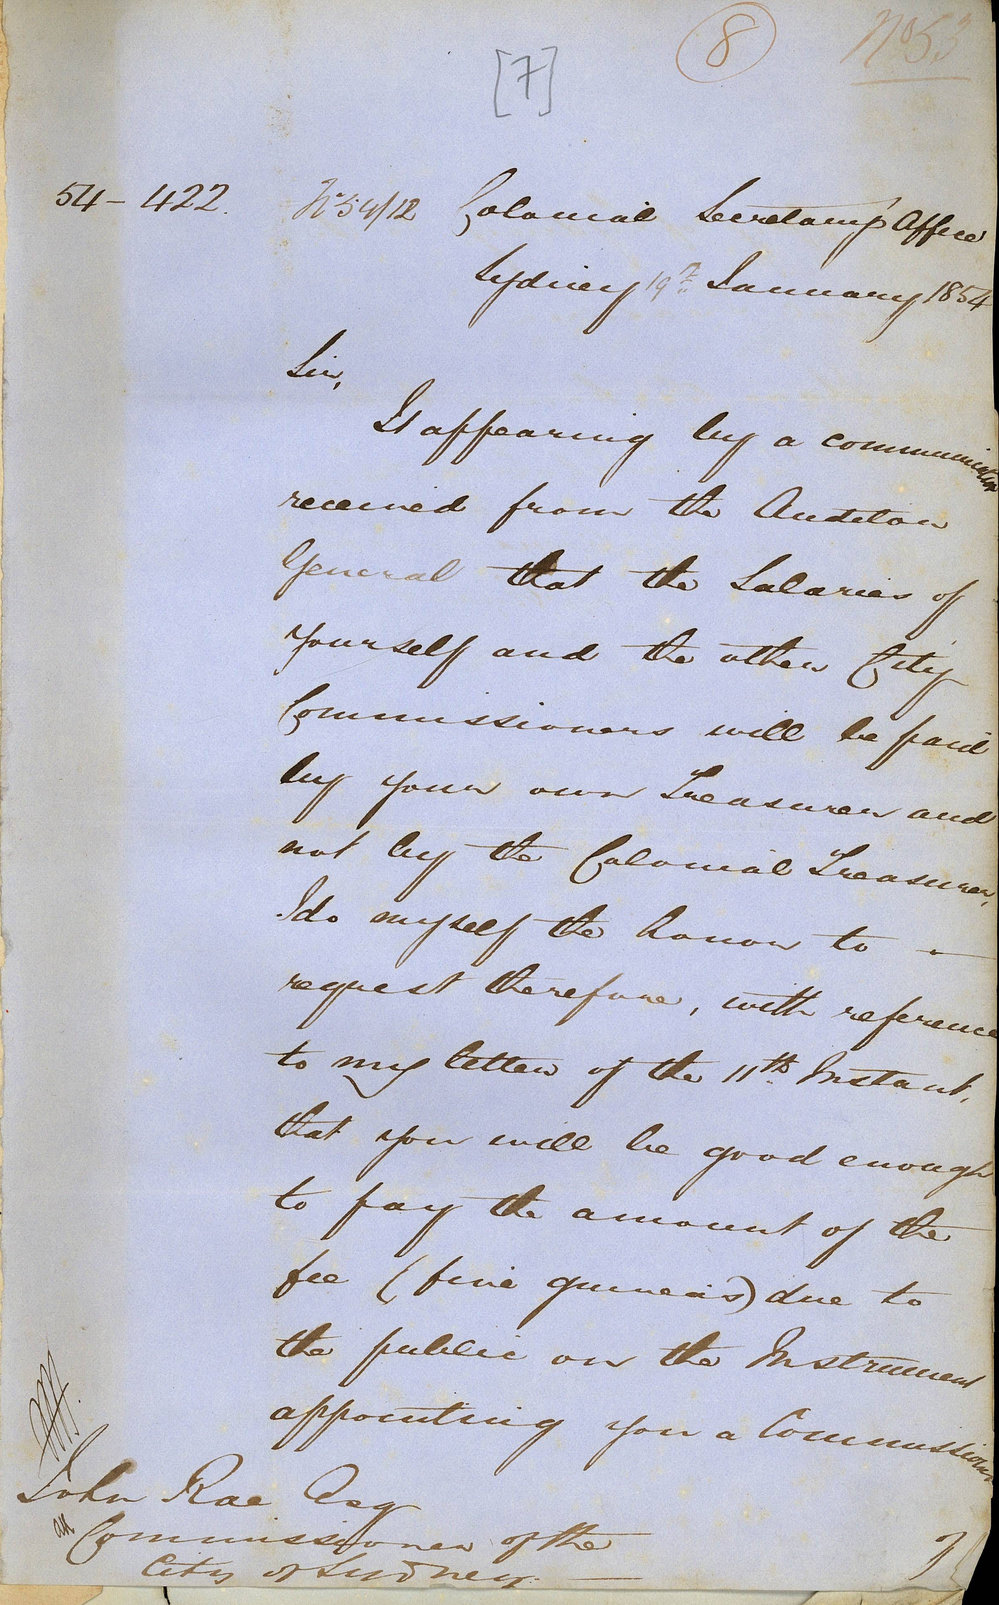 8
No 53
[7]
54-422.
No 54/12 Colonial Secretary's Office
Sydney 19th January 1854
Sir,
It appearing by a communication
received from the Auditor
General that the Salaries of
yourself and the other City
Commissioners will be paid
by your own Treasurer and
not by the Colonial Treasurer,
I do myself the honor to -
request therefore, with reference
to my letter of the 11th Instant,
that you will be good enough
to pay the amount of the
fee (five guineas) due to
the public on the Instrument
appointing you a Commissioner
John Rae Esq
Commissioner of the
City of Sydney. -